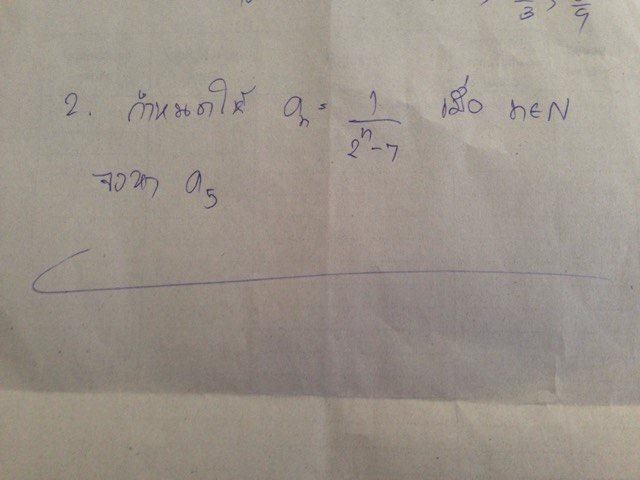 3, 9
2. กำหนดให้ aₙ = 1/(2ⁿ-7) เมื่อ n∈N
จงหา a₅